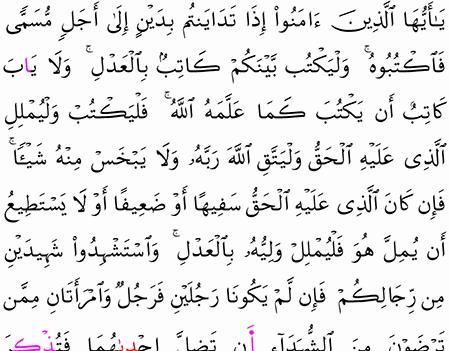 يَٰٓأَيُّهَا ٱلَّذِينَ ءَامَنُوٓا۟ إِذَا تَدَايَنتُم بِدَيْنٍ إِلَىٰٓ أَجَلٍ مُّسَمًّى
فَٱكْتُبُوهُ ۚ وَلْيَكْتُب بَّيْنَكُمْ كَاتِبٌۢ بِٱلْعَدْلِ ۚ وَلَا يَابَ
كَاتِبٌ أَن يَكْتُبَ كَمَا عَلَّمَهُ ٱللَّهُ ۚ فَلْيَكْتُبْ وَلْيُمْلِلِ
ٱلَّذِى عَلَيْهِ ٱلْحَقُّ وَلْيَتَّقِ ٱللَّهَ رَبَّهُۥ وَلَا يَبْخَسْ مِنْهُ شَيْـًٔا ۚ
فَإِن كَانَ ٱلَّذِى عَلَيْهِ ٱلْحَقُّ سَفِيهًا أَوْ ضَعِيفًا أَوْ لَا يَسْتَطِيعُ
أَن يُمِلَّ هُوَ فَلْيُمْلِلْ وَلِيُّهُۥ بِٱلْعَدْلِ ۚ وَٱسْتَشْهِدُوا۟ شَهِيدَيْنِ
مِن رِّجَالِكُمْ فَإِن لَّمْ يَكُونَا رَجُلَيْنِ فَرَجُلٌ وَٱمْرَأَتَانِ مِمَّن
تَرْضَوْنَ مِنَ ٱلشُّهَدَآءِ أَن تَضِلَّ إِحْدَىٰهُمَا فَتُذْكِرَ